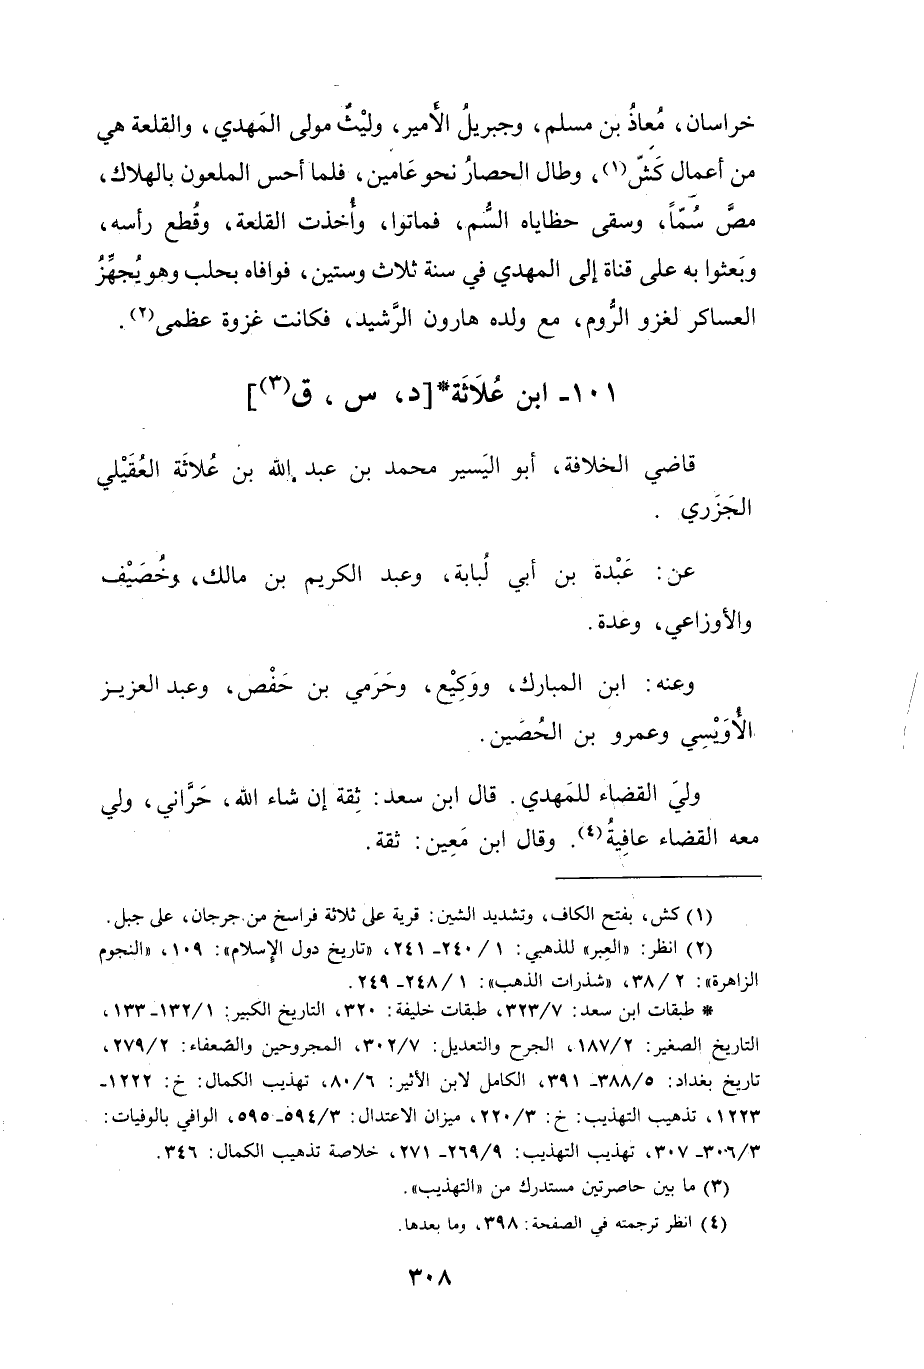 خراسان، مُعاذُ بن مسلم، وجبريلُ الأَمير، وليْثٌ مولى المَهدي، والقلعة هي
من أعمال كَشّ(١)، وطال الحصارُ نحو عَامين، فلما أحس الملعون بالهلاك،
مصَّ سُمّاً، وسقى حظاياه السُّم، فماتوا، وأُخذت القلعة، وقُطع رأسه،
وبَعثوا به على قناة إلى المهدي في سنة ثلاث وستين، فوافاه بحلب وهو يُجهِّزُ
العساكر لغزو الرُّوم، مع ولده هارون الرَّشيد، فكانت غزوة عظمى(٢).
١٠١ـ ابن عُلَاثَة*[د، س ، ق(٣)]
قاضي الخلافة، أبو اليَسير محمد بن عبد الله بن عُلاثَة العُقَيْلي
الجَزَري .
عن: عَبْدة بن أبي لُبابة، وعبد الكريم بن مالك، وخُصَيْف
والأوزاعي، وعدة.
وعنه: ابن المبارك، ووَكِيْع، وحَرَمي بن حَفْص، وعبد العزيز
الأُوَيْسِي وعمرو بن الحُصَين.
وليَ القضاء للمَهدي. قال ابن سعد: ثِقة إن شاء الله، حَرَّاني، ولي
معه القضاء عافِيةُ(٤). وقال ابن مَعِين: ثقة.
(١) كش، بفتح الكاف، وتشديد الشين: قرية على ثلاثة فراسخ من جرجان، على جبل.
(٢) انظر: «العِبر» للذهبي: ١ /٢٤٠ـ ٢٤١، «تاريخ دول الإسلام»: ١٠٩، «النجوم
الزاهرة»: ٢ /٣٨، «شذرات الذهب»: ١ /٢٤٨ـ ٢٤٩.
* طبقات ابن سعد: ٣٢٣/٧، طبقات خليفة: ٣٢٠، التاريخ الكبير: ١٣٢/١ـ ١٣٣،
التاريخ الصغير: ١٨٧/٢، الجرح والتعديل: ٣٠٢/٧، المجروحين والضّعفاء: ٢٧٩/٢،
تاريخ بغداد: ٣٨٨/٥ـ ٣٩١، الكامل لابن الأثير: ٨٠/٦، تهذيب الكمال: خ: ١٢٢٢ـ
١٢٢٣، تذهيب التهذيب: خ: ٢٢٠/٣، ميزان الاعتدال: ٥٩٤/٣ـ ٥٩٥، الوافي بالوفيات:
٣٠٦/٣ـ ٣٠٧، تهذيب التهذيب: ٢٦٩/٩ـ ٢٧١، خلاصة تذهيب الكمال: ٣٤٦.
(٣) ما بين حاصرتين مستدرك من «التهذيب».
(٤) انظر ترجمته في الصفحة: ٣٩٨، وما بعدها.
٣٠٨